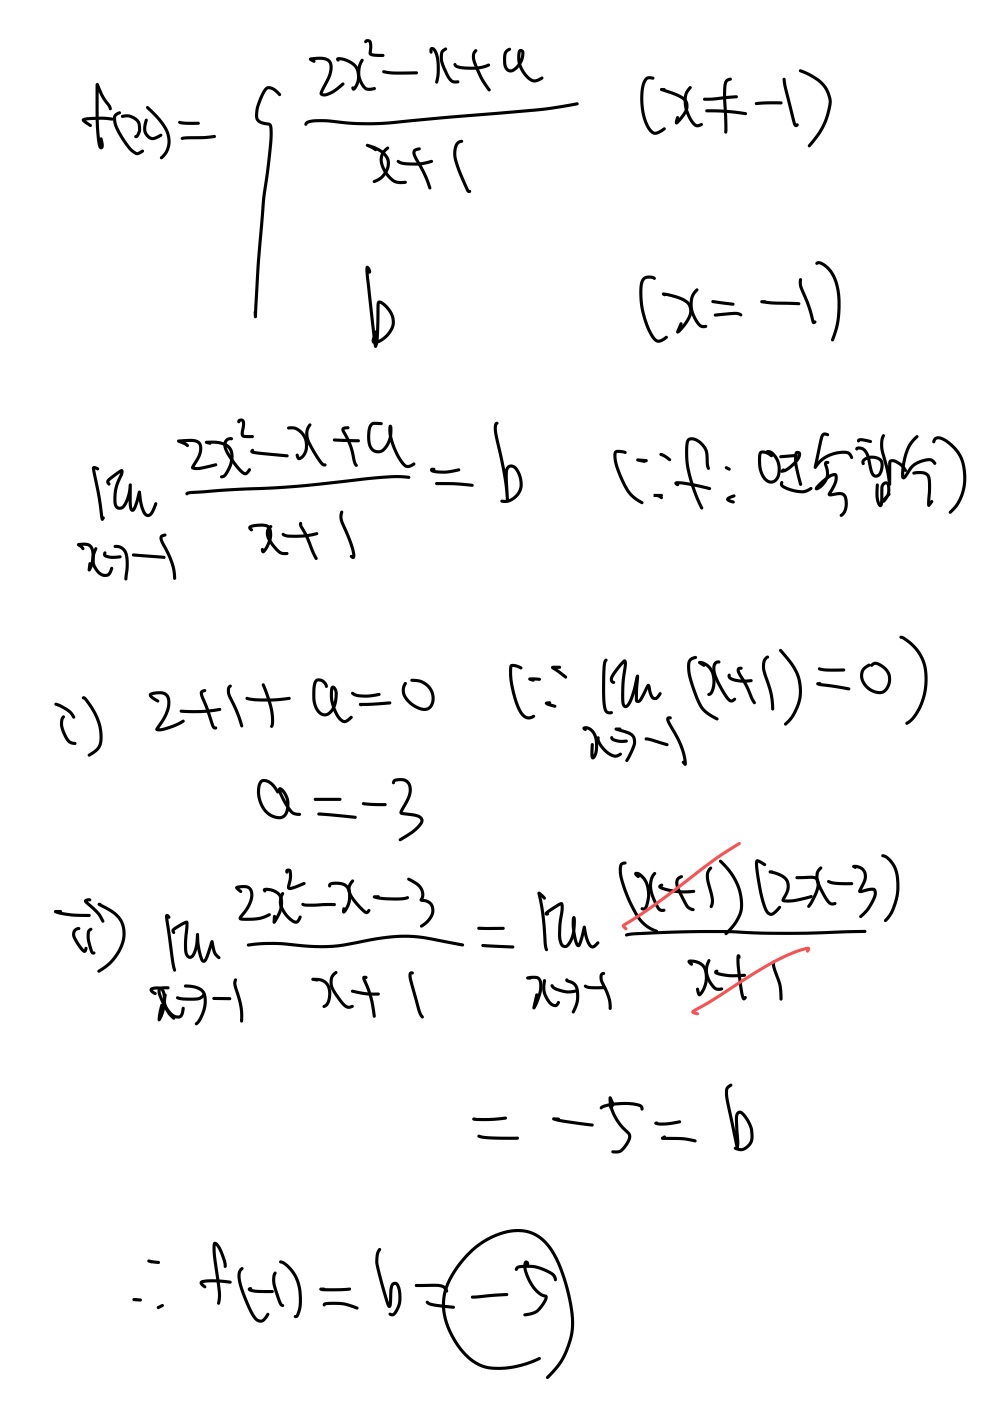 f(x) = { (2x² - x + a) / (x + 1) (x ≠ -1)
b (x = -1)
lim x→-1 (2x² - x + a) / (x + 1) = b (∵ f : 연속함수)
i) 2 + 1 + a = 0 (∵ lim x→-1 (x+1) = 0)
a = -3
ii) lim x→-1 (2x² - x - 3) / (x + 1) = lim x→-1 (x+1)(2x-3) / (x+1)
= -5 = b
∴ f(-1) = b = -5